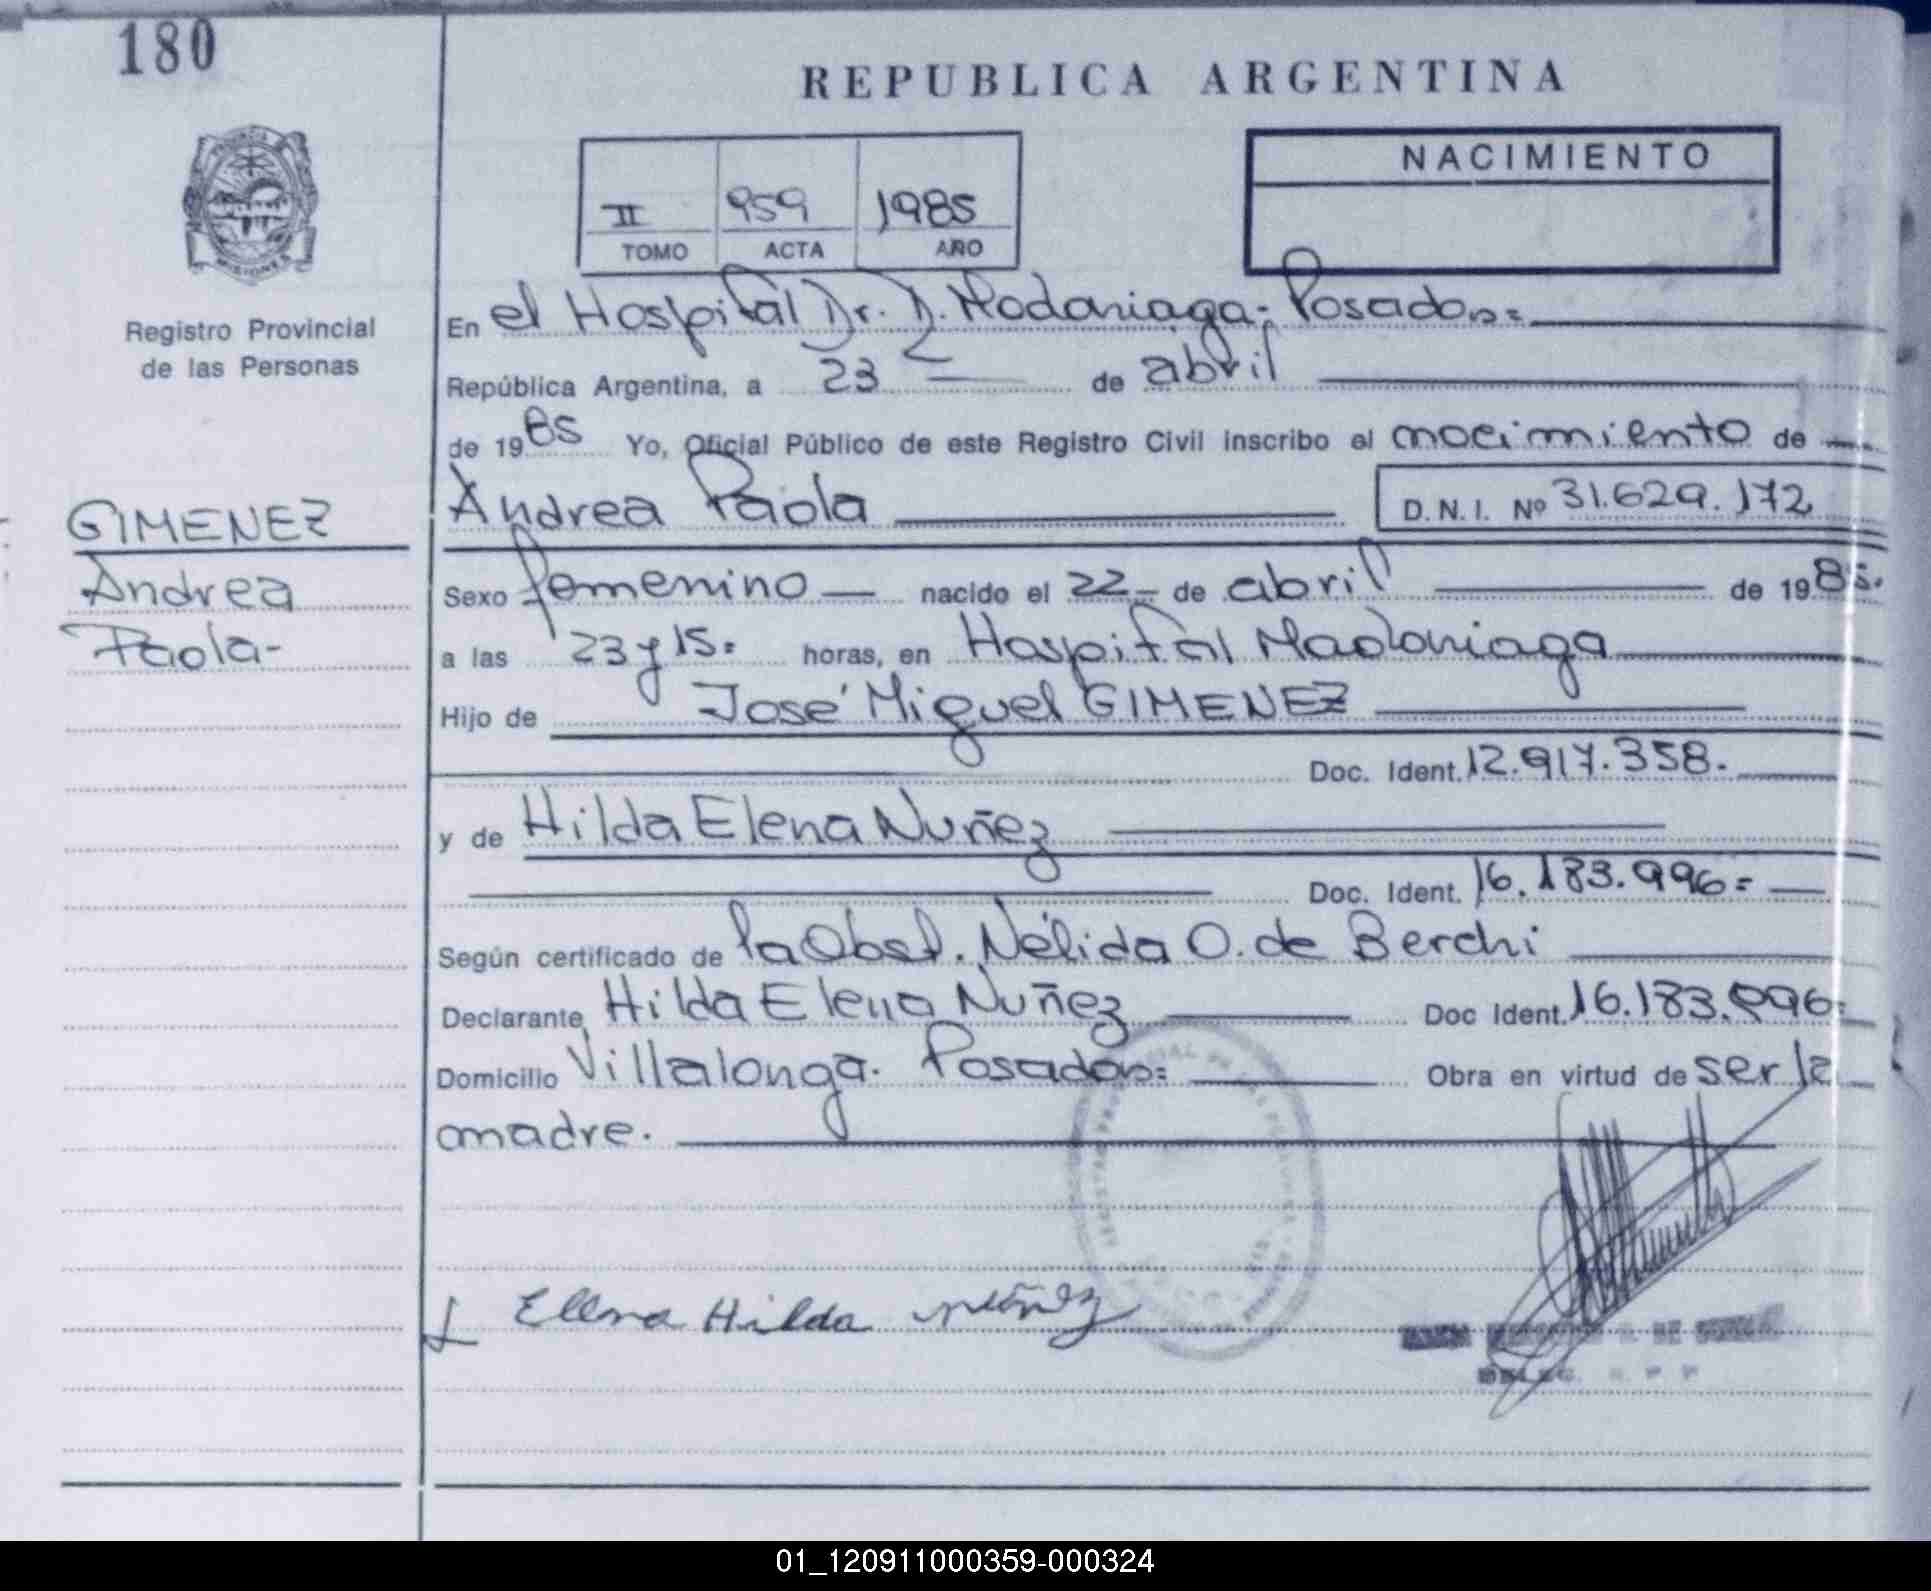 180
REPUBLICA ARGENTINA
NACIMIENTO
II 959 1985
TOMO ACTA AÑO
MISIONES
Registro Provincial
de las Personas
En el Hospital Dr. R. Madariaga. Posadas=
República Argentina, a 23 de abril
de 1985 Yo, Oficial Público de este Registro Civil inscribo el nacimiento de
GIMENEZ
Andrea
Paola-
Andrea Paola D.N.I. Nº 31.629.172
Sexo femenino nacido el 22 de abril de 1985.
a las 23 y 15= horas, en Hospital Madariaga
Hijo de José Miguel GIMENEZ
Doc. Ident. 12.917.358.
y de Hilda Elena Nuñez
Doc. Ident. 16.183.996=
Según certificado de la Obst. Nélida O. de Berchi
Declarante Hilda Elena Nuñez Doc Ident. 16.183.996=
Domicilio Villalonga. Posadas= Obra en virtud de ser la
madre.
Ellena Hilda nuñez
01_120911000359-000324